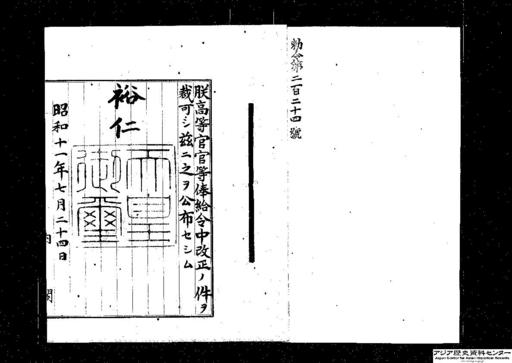 勅令第二百二十四號
朕高等官官等俸給令中改正ノ件ヲ
裁可シ茲ニ之ヲ公布セシム
裕仁
天皇御璽
昭和十一年七月二十四日
内閣
アジア歴史資料センター
Japan Center for Asian Historical Records